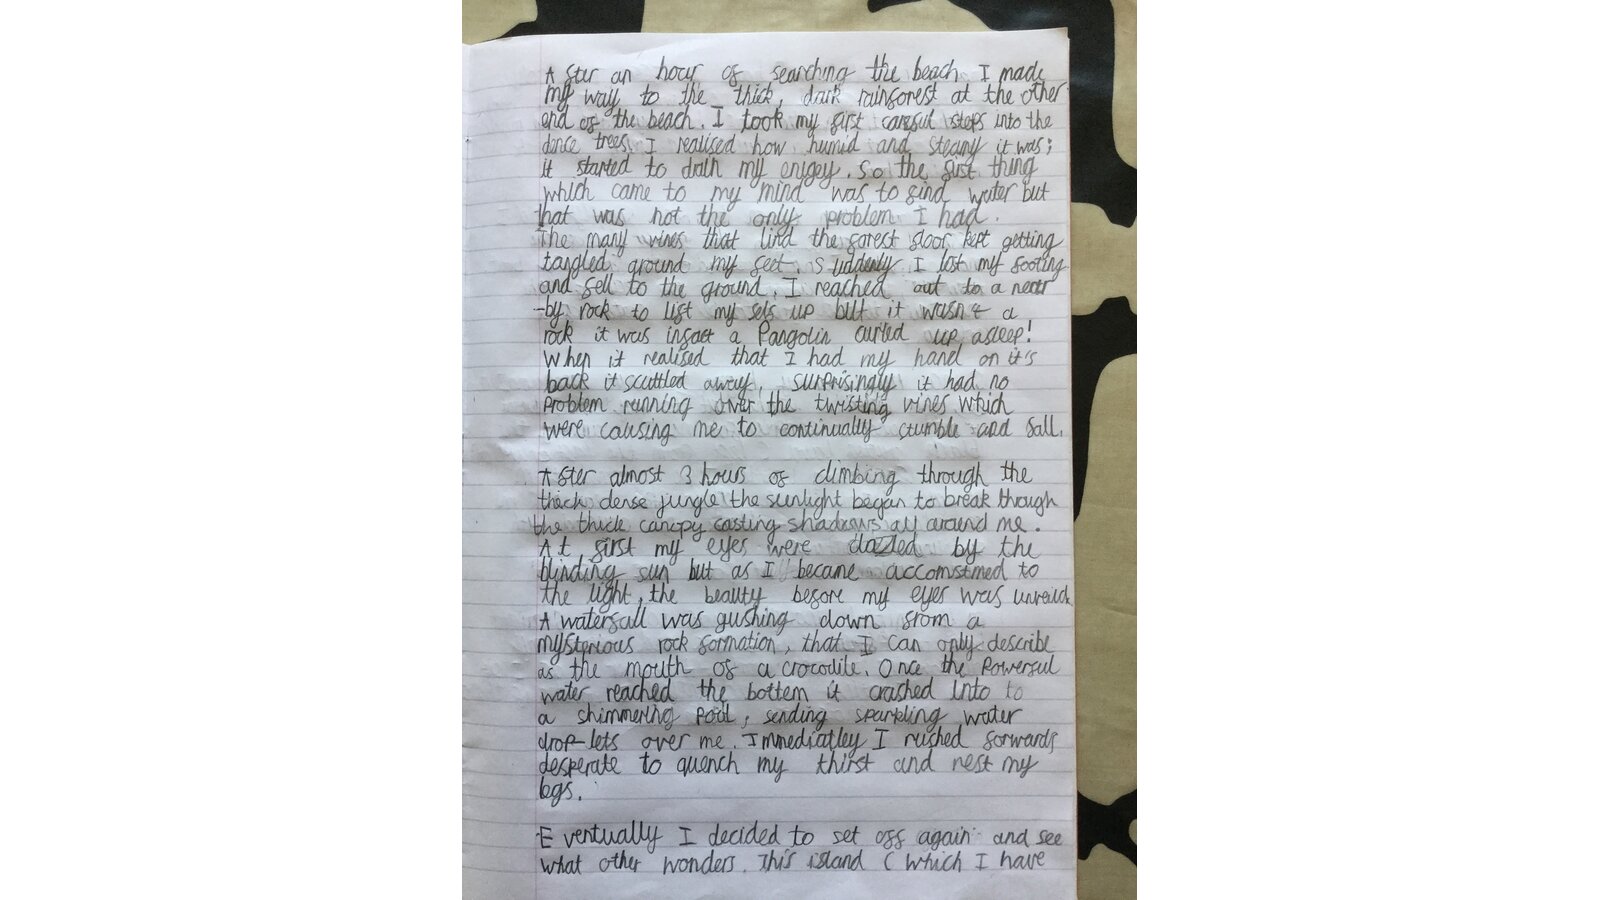 After an hour of searching the beach I made
my way to the thick, dark rainforest at the other
end of the beach. I took my first careful steps into the
dence trees. I realised how humid and steamy it was;
it started to drain my enjgey. So the first thing
which came to my mind was to find water but
that was not the only problem I had.
The many vines that lind the forest floor kept getting
tangled around my feet. Suddenly I lost my footing
and fell to the ground. I reached out to a near
-by rock to lift my self up but it wasn't a
rock it was infact a Pangolin curled up asleep!
When it realised that I had my hand on it's
back it scuttled away, surprisingly it had no
problem running over the twisting vines which
were causing me to continually stumble and fall.
After almost 3 hours of climbing through the
thick dense jungle the sunlight began to break through
the thick canopy casting shadows all around me.
At first my eyes were dazzled by the
blinding sun but as I became accomstmed to
the light, the beauty before my eyes was
A waterfall was gushing down from a
mysterious rock formation, that I can only describe
as the mouth of a crocodile. Once the powerful
water reached the bottem it crashed into to
a shimmering pool, sending sparkling water
drop-lets over me. Immediatley I rushed forwards
desperate to quench my thirst and rest my
legs.
Eventually I decided to set off again and see
what other wonders. This island (which I have